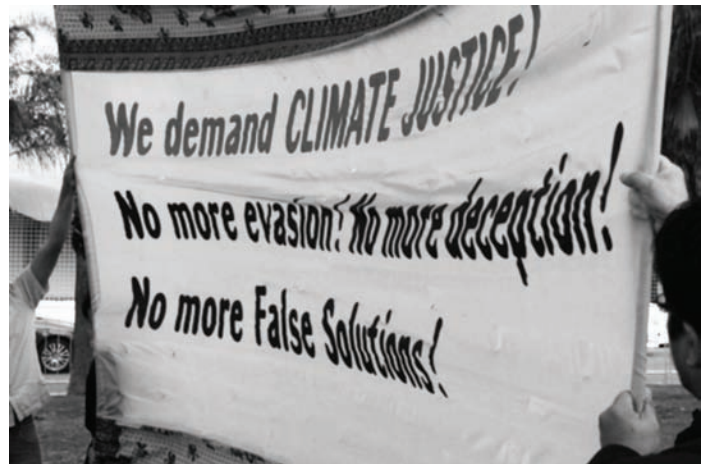 We demand CLIMATE JUSTICE!
No more evasion! No more deception!
No more False Solutions!